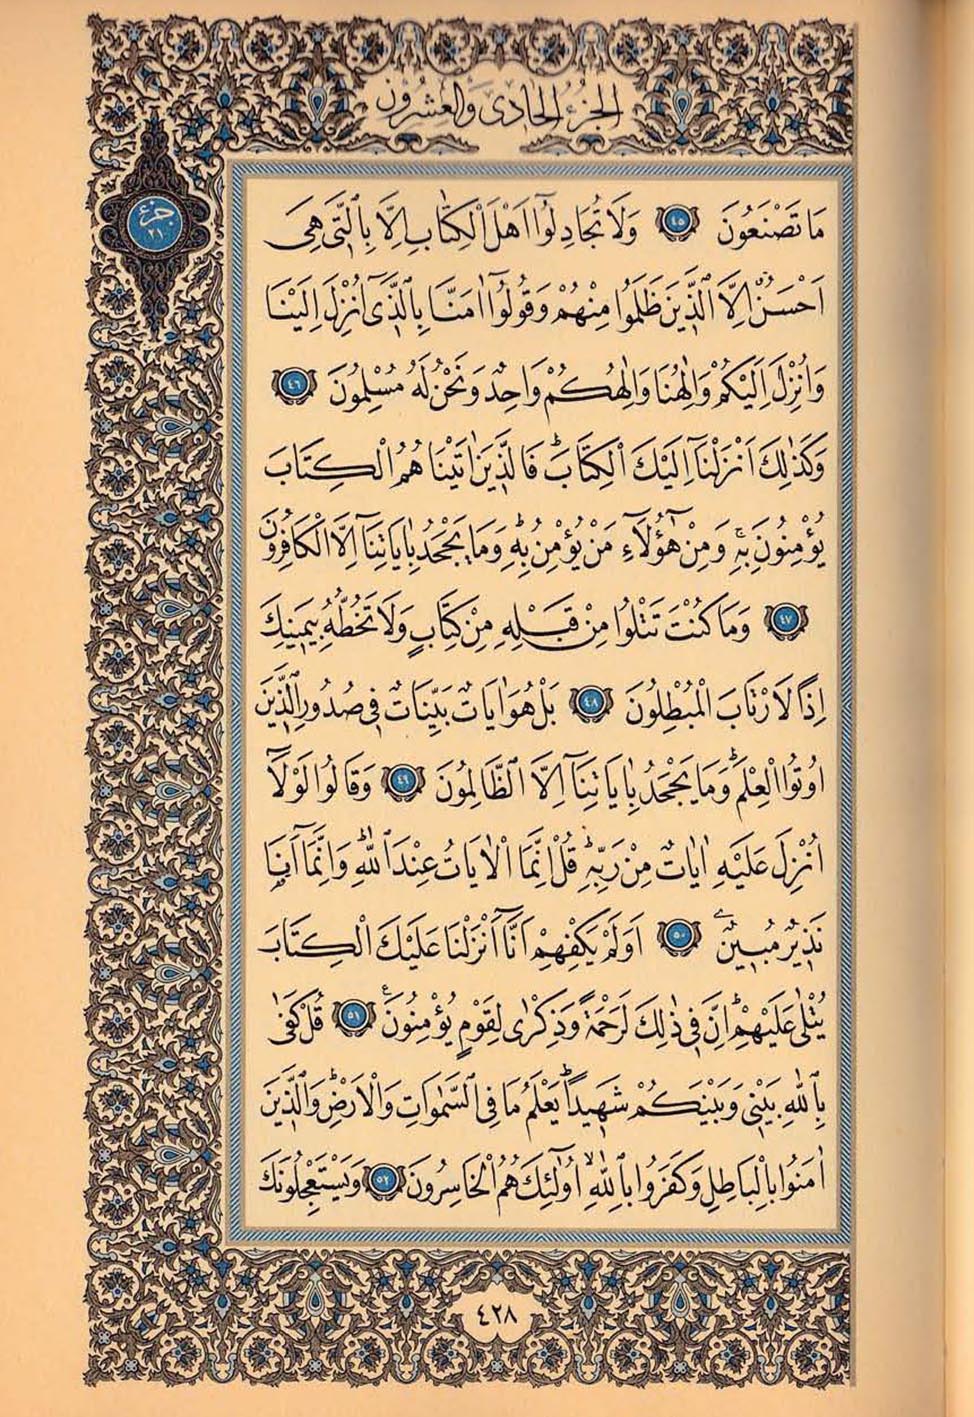 الجزء الحادى والعشرون
جزء
٢١
مَا تَصْنَعُونَ ٤٥ وَلَا تُجَادِلُٓوا اَهْلَ الْكِتَابِ اِلَّا بِالَّتٖى هِىَ
اَحْسَنُ اِلَّا الَّذٖينَ ظَلَمُوا مِنْهُمْ وَقُولُٓوا اٰمَنَّا بِالَّذٖٓى اُنْزِلَ اِلَيْنَا
وَاُنْزِلَ اِلَيْكُمْ وَاِلٰهُنَا وَاِلٰهُكُمْ وَاحِدٌ وَنَحْنُ لَهُ مُسْلِمُونَ ٤٦
وَكَذٰلِكَ اَنْزَلْنَٓا اِلَيْكَ الْكِتَابَؕ فَالَّذٖينَ اٰتَيْنَاهُمُ الْكِتَابَ
يُؤْمِنُونَ بِهٖۚ وَمِنْ هٰٓؤُلَٓاءِ مَنْ يُؤْمِنُ بِهٖؕ وَمَا يَجْحَدُ بِاٰيَاتِنَٓا اِلَّا الْكَافِرُونَ
٤٧ وَمَا كُنْتَ تَتْلُوا مِنْ قَبْلِهٖ مِنْ كِتَابٍ وَلَا تَخُطُّهُ بِيَمٖينِكَ
اِذًا لَارْتَابَ الْمُبْطِلُونَ ٤٨ بَلْ هُوَ اٰيَاتٌ بَيِّنَاتٌ فٖى صُدُورِ الَّذٖينَ
اُوتُوا الْعِلْمَؕ وَمَا يَجْحَدُ بِاٰيَاتِنَٓا اِلَّا الظَّالِمُونَ ٤٩ وَقَالُوا لَوْلَٓا
اُنْزِلَ عَلَيْهِ اٰيَاتٌ مِنْ رَبِّهٖؕ قُلْ اِنَّمَا الْاٰيَاتُ عِنْدَ اللّٰهِؕ وَاِنَّمَٓا اَنَا
نَذٖيرٌ مُبٖينٌ ٥٠ اَوَلَمْ يَكْفِهِمْ اَنَّٓا اَنْزَلْنَا عَلَيْكَ الْكِتَابَ
يُتْلٰى عَلَيْهِمْؕ اِنَّ فٖى ذٰلِكَ لَرَحْمَةً وَذِكْرٰى لِقَوْمٍ يُؤْمِنُونَ ٥١ قُلْ كَفٰى
بِاللّٰهِ بَيْنٖى وَبَيْنَكُمْ شَهٖيدًاؕ يَعْلَمُ مَا فِى السَّمٰوَاتِ وَالْاَرْضِؕ وَالَّذٖينَ
اٰمَنُوا بِالْبَاطِلِ وَكَفَرُوا بِاللّٰهِۙ اُولٰٓئِكَ هُمُ الْخَاسِرُونَ ٥٢ وَيَسْتَعْجِلُونَكَ
٤٢٨